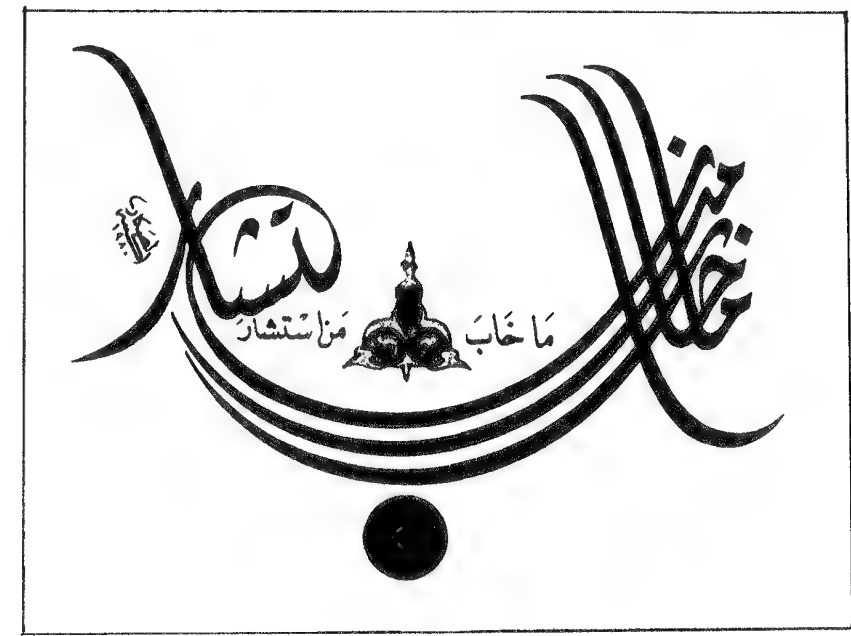 ما خاب من استشار
مَا خَابَ مَنْ اسْتَشارَ